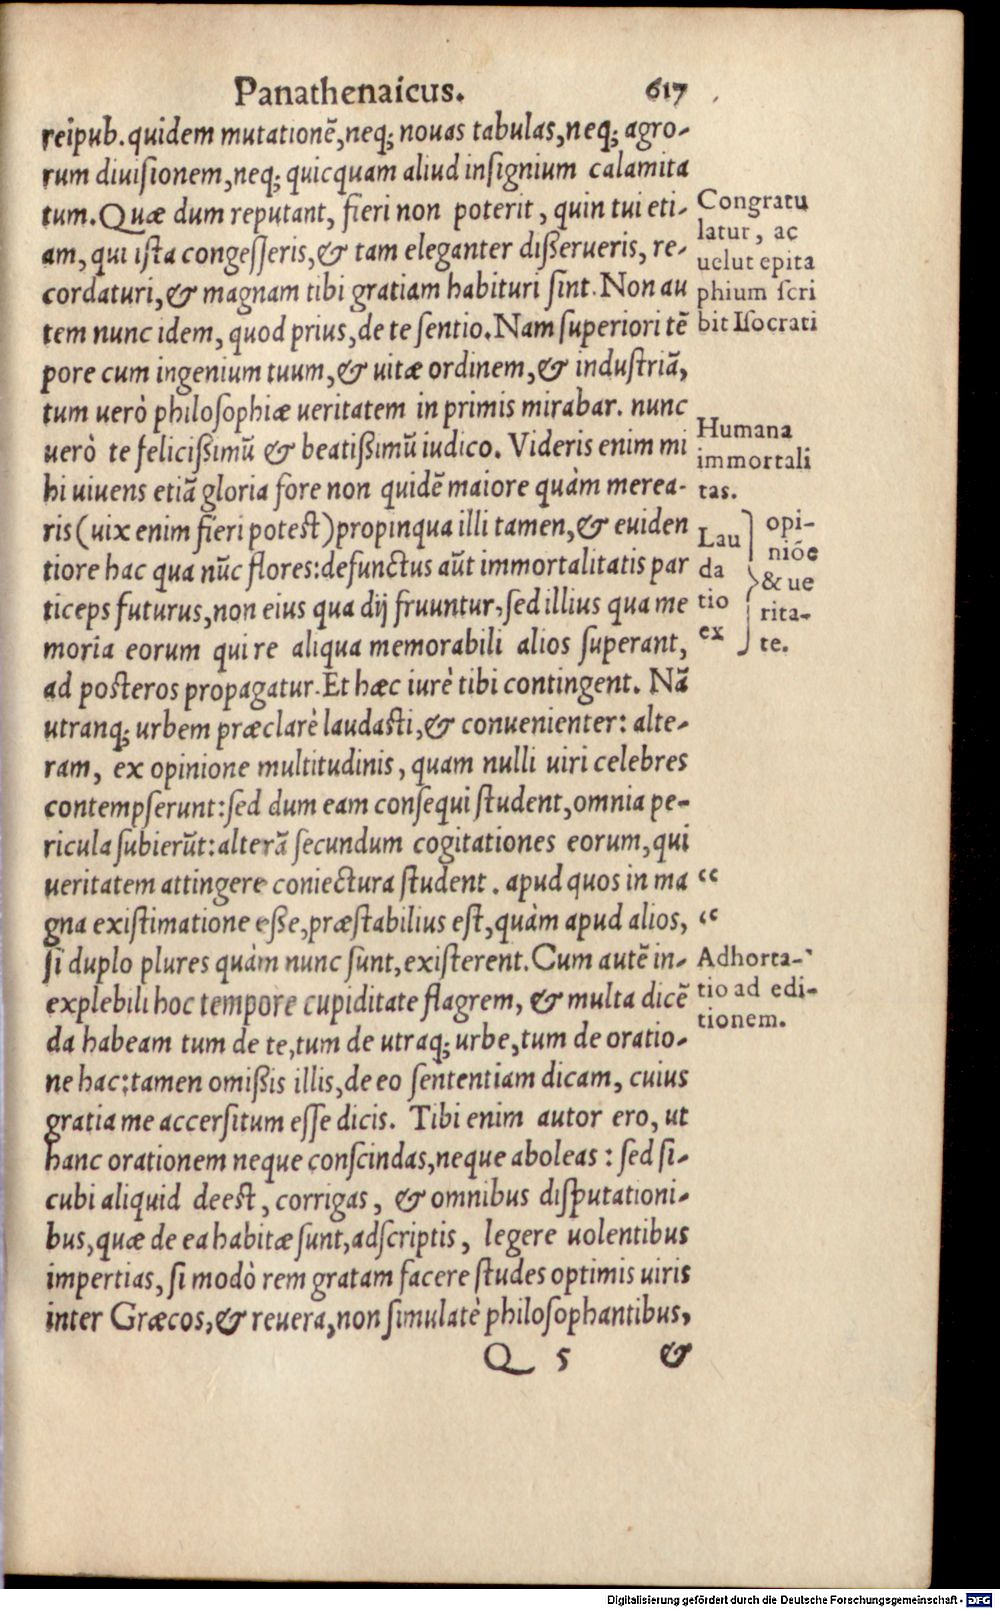 Panathenaicus. 617
reipub. quidem mutationē, neq; nouas tabulas, neq; agro-
rum diuisionem, neq; quicquam aliud insignium calamita
tum. Quæ dum reputant, fieri non poterit, quin tui eti-
am, qui ista congesseris, & tam eleganter disserueris, re-
cordaturi, & magnam tibi gratiam habituri sint. Non au
tem nunc idem, quod prius, de te sentio. Nam superiori tē
pore cum ingenium tuum, & uitæ ordinem, & industriā,
tum uerò philosophiæ ueritatem in primis mirabar. nunc
uerò te felicissimū & beatissimū iudico. Videris enim mi
hi uiuens etiā gloria fore non quidē maiore quàm merea-
ris (uix enim fieri potest) propinqua illi tamen, & euiden
tiore hac qua nūc flores: defunctus aūt immortalitatis par
ticeps futurus, non eius qua dij fruuntur, sed illius qua me
moria eorum qui re aliqua memorabili alios superant,
ad posteros propagatur. Et hæc iurè tibi contingent. Nā
utranq; urbem præclarè laudasti, & conuenienter: alte-
ram, ex opinione multitudinis, quam nulli uiri celebres
contempserunt: sed dum eam consequi student, omnia pe-
ricula subierūt: alterā secundum cogitationes eorum, qui
ueritatem attingere coniectura student. apud quos in ma
gna existimatione esse, præstabilius est, quàm apud alios,
si duplo plures quàm nunc sunt, existerent. Cum autē in-
explebili hoc tempore cupiditate flagrem, & multa dicē
da habeam tum de te, tum de utraq; urbe, tum de oratio-
ne hac: tamen omissis illis, de eo sententiam dicam, cuius
gratia me accersitum esse dicis. Tibi enim autor ero, ut
hanc orationem neque conscindas, neque aboleas: sed si-
cubi aliquid deest, corrigas, & omnibus disputationi-
bus, quæ de ea habitæ sunt, adscriptis, legere uolentibus
impertias, si modò rem gratam facere studes optimis uiris
inter Græcos, & reuera, non simulatè philosophantibus,
Q 5 &
Congratu
latur, ac
uelut epita
phium scri
bit Isocrati
Humana
immortali
tas.
Lau
da
tio
ex
opi-
niōe
& ue
rita-
te.
“
“
Adhorta-
tio ad edi-
tionem.
Digitalisierung gefördert durch die Deutsche Forschungsgemeinschaft - DFG